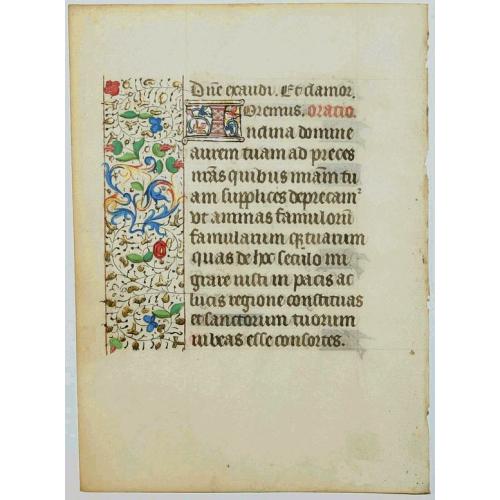 Dn̄e exaudi. Et clamor.
Oremus. Oratio
Inclina domine
aurem tuam ad preces
nr̄as quibus miam̄ tu
am supplices deprecamˀ
vt animas famulorū
famularum qꝫ tuarum
quas de hoc seculo mi
grare iusti in pacis ac
lucis regione constituas
et sanctorum tuorum
iubeas esse consortes.